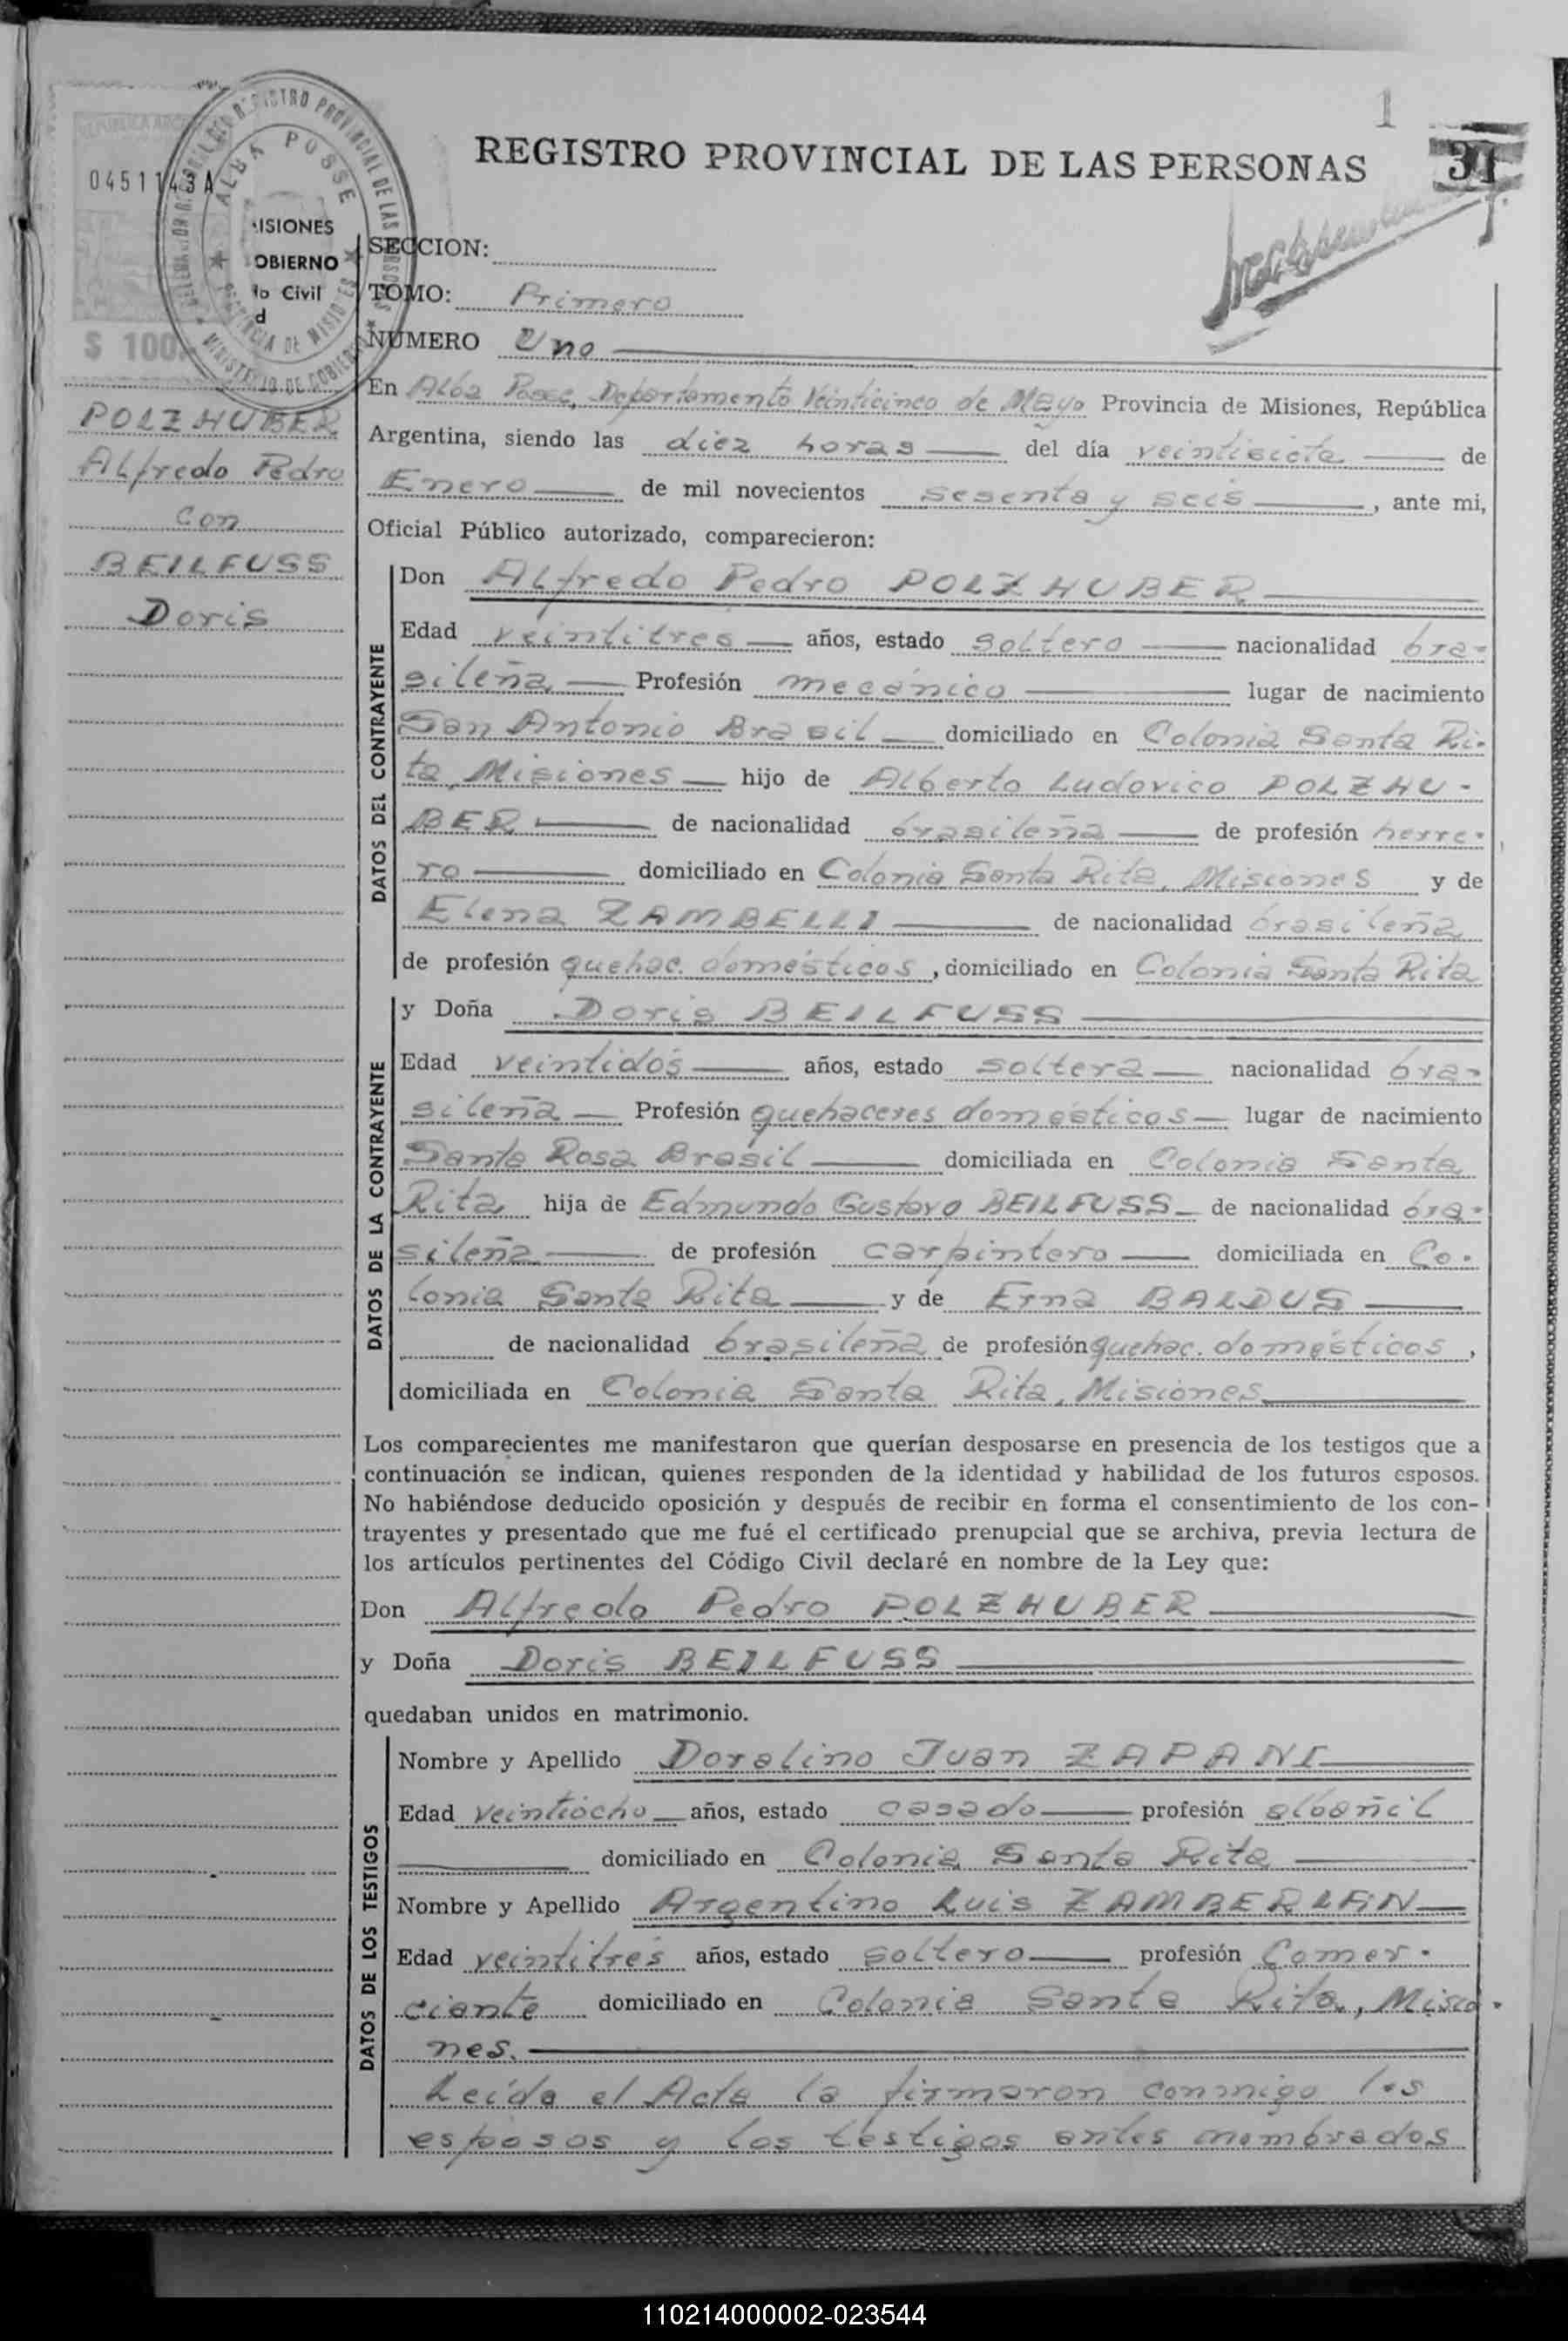 1
REGISTRO PROVINCIAL DE LAS PERSONAS
31
0451143A
REGISTRO PROVINCIAL DE LAS PERSONAS
ALBA POSSE
PROVINCIA DE MISIONES
MINISTERIO DE GOBIERNO
ISIONES
OBIERNO
Civil
d
$ 100
SECCION:
TOMO: Primero
NUMERO Uno
En Alba Posse, Departamento Veinticinco de Mayo Provincia de Misiones, República
Argentina, siendo las diez horas del día veintisiete de
Enero de mil novecientos sesenta y seis, ante mi,
Oficial Público autorizado, comparecieron:
POLZHUBER
Alfredo Pedro
con
BEILFUSS
Doris
DATOS DEL CONTRAYENTE
Don Alfredo Pedro POLZHUBER
Edad veintitres años, estado soltero nacionalidad bra-
sileña Profesión mecánico lugar de nacimiento
San Antonio Brasil domiciliado en Colonia Santa Ri-
ta, Misiones hijo de Alberto Ludovico POLZHU-
BER de nacionalidad brasileña de profesión herre-
ro domiciliado en Colonia Santa Rita, Misiones y de
Elena ZAMBELLI de nacionalidad brasileña
de profesión quehac. domésticos, domiciliado en Colonia Santa Rita
DATOS DE LA CONTRAYENTE
y Doña Doris BEILFUSS
Edad veintidós años, estado soltera nacionalidad bra-
sileña Profesión quehaceres domésticos lugar de nacimiento
Santa Rosa Brasil domiciliada en Colonia Santa
Rita hija de Edmundo Gustavo BEILFUSS de nacionalidad bra-
sileña de profesión carpintero domiciliada en Co-
lonia Santa Rita y de Erna BALDUS
de nacionalidad brasileña de profesión quehac. domésticos,
domiciliada en Colonia Santa Rita, Misiones
Los comparecientes me manifestaron que querían desposarse en presencia de los testigos que a
continuación se indican, quienes responden de la identidad y habilidad de los futuros esposos.
No habiéndose deducido oposición y después de recibir en forma el consentimiento de los con-
trayentes y presentado que me fué el certificado prenupcial que se archiva, previa lectura de
los artículos pertinentes del Código Civil declaré en nombre de la Ley que:
Don Alfredo Pedro POLZHUBER
y Doña Doris BEILFUSS
quedaban unidos en matrimonio.
DATOS DE LOS TESTIGOS
Nombre y Apellido Doralino Juan ZAPANI
Edad veintiocho años, estado casado profesión albañil
domiciliado en Colonia Santa Rita
Nombre y Apellido Argentino Luis ZAMBERLAN
Edad veintitrés años, estado soltero profesión Comer-
ciante domiciliado en Colonia Santa Rita, Misio-
nes.
Leída el Acta la firmaron conmigo los
esposos y los testigos antes nombrados
110214000002-023544